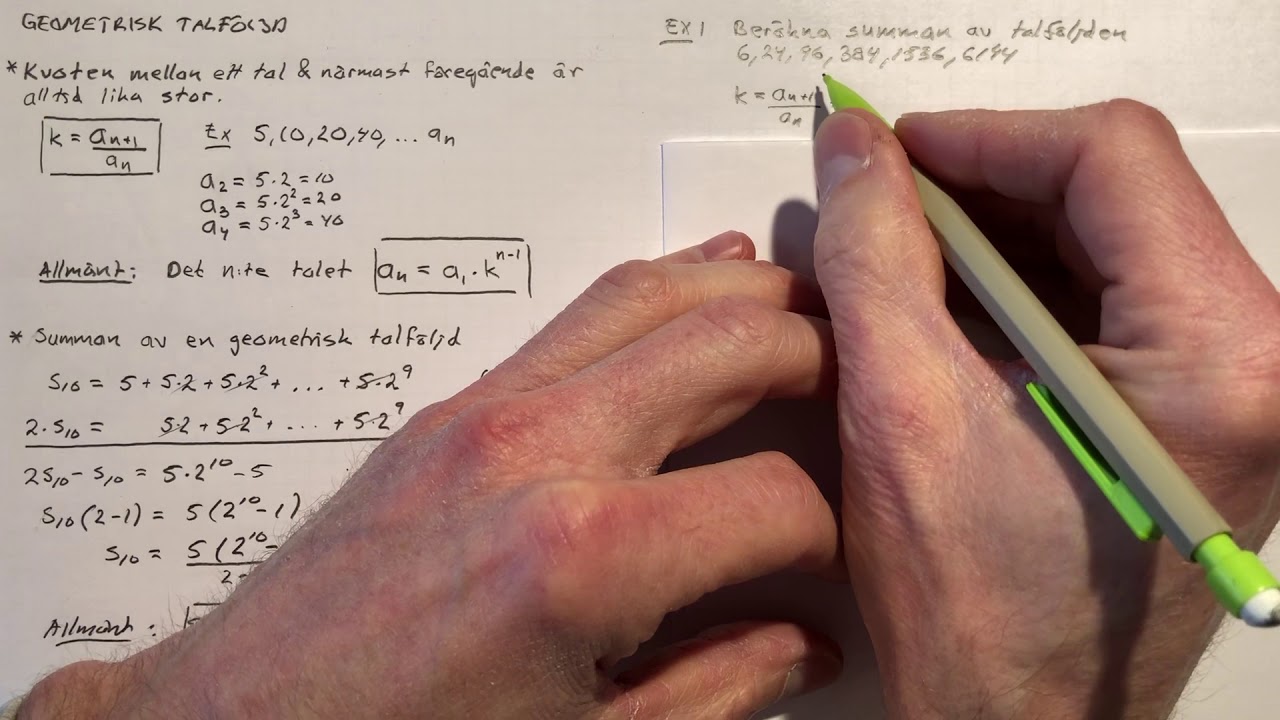 GEOMETRISK TALFÖLJD
* Kvoten mellan ett tal & närmast föregående är
alltid lika stor.
k = aₙ₊₁ / aₙ
Ex 5, 10, 20, 40, ... aₙ
a₂ = 5·2 = 10
a₃ = 5·2² = 20
a₄ = 5·2³ = 40
Allmänt: Det n:te talet aₙ = a₁·kⁿ⁻¹
* Summan av en geometrisk talföljd
S₁₀ = 5 + 5·2 + 5·2² + ... + 5·2⁹
2·S₁₀ = 5·2 + 5·2² + ... + 5·2⁹
2S₁₀ - S₁₀ = 5·2¹⁰ - 5
S₁₀(2-1) = 5(2¹⁰-1)
S₁₀ = 5(2¹⁰-
2-
Allmänt:
EX 1 Beräkna summan av talföljden
6, 24, 96, 384, 1536, 6144
k = aₙ₊₁ / aₙ